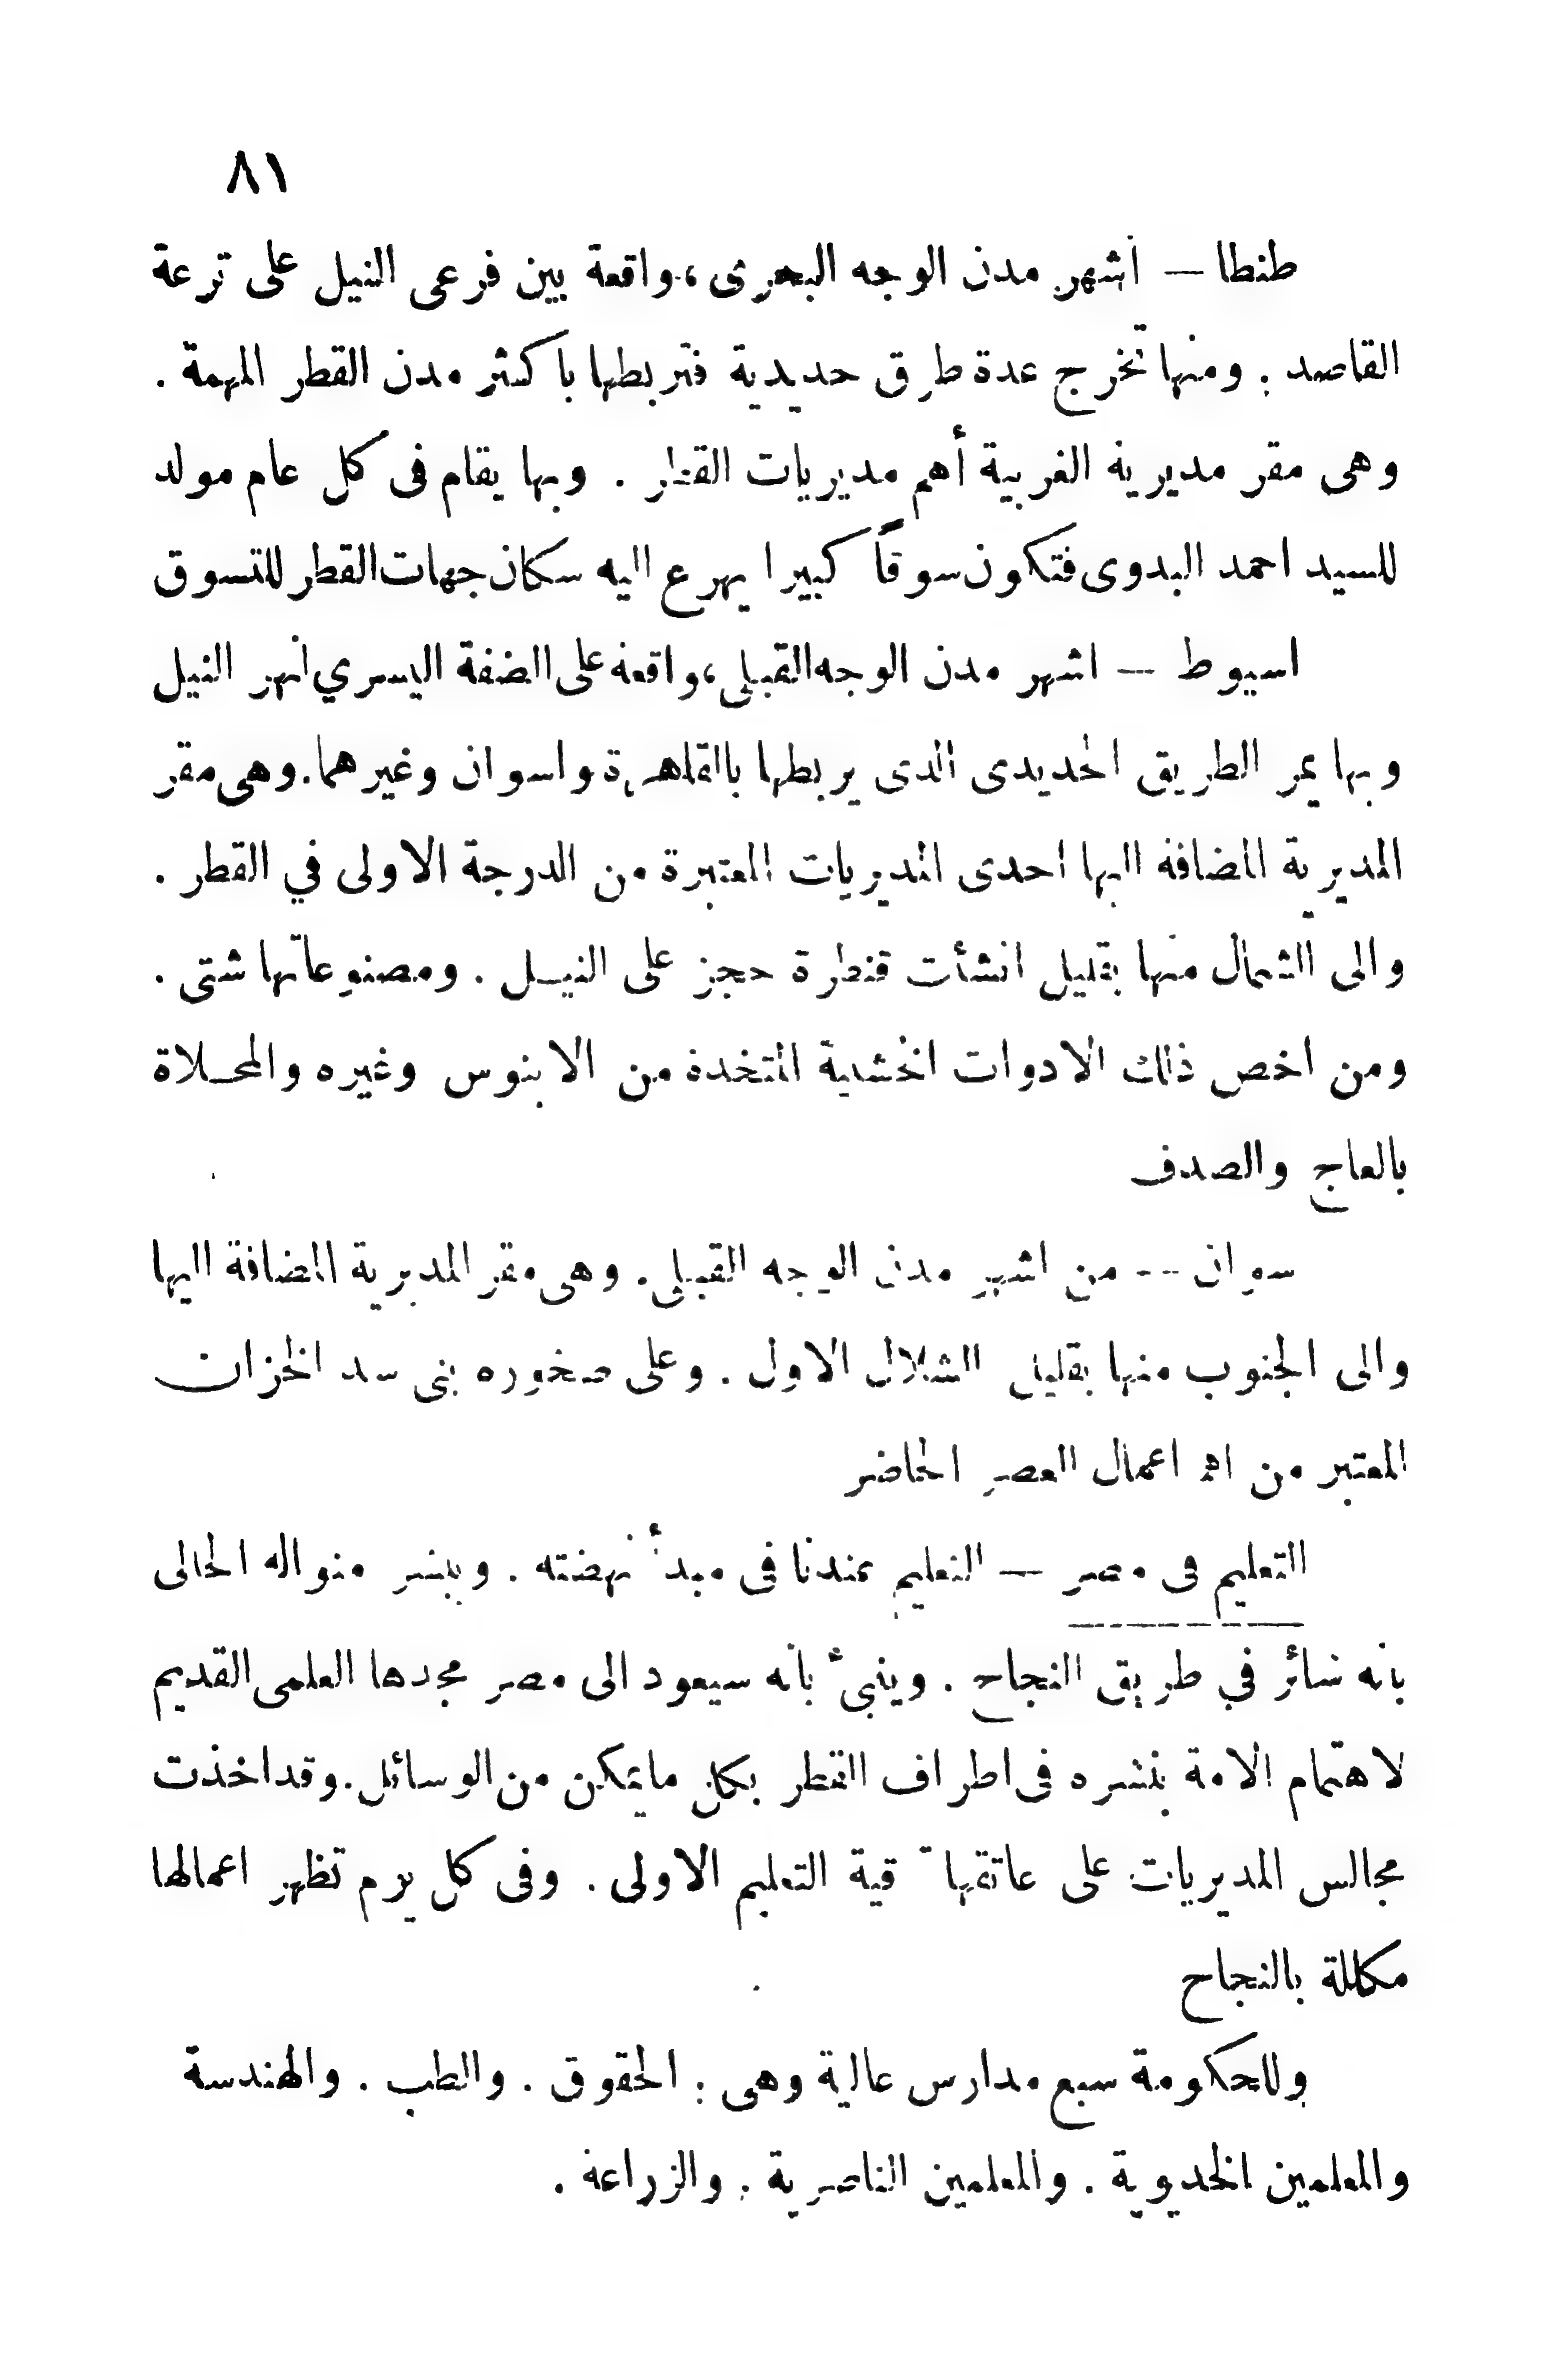 ٨١
طنطا — أشهر مدن الوجه البحرى، واقعة بين فرعى النيل على ترعة
القاصد . ومنها تخرج عدة طرق حديدية فتربطها باكثر مدن القطر المهمة .
وهى مقر مديرية الغربية أهم مديريات القطر . وبها يقام فى كل عام مولد
للسيد احمد البدوى فتكون سوقاً كبيرا يهرع اليه سكان جهات القطر للتسوق
اسيوط — اشهر مدن الوجه القبلى، واقعة على الضفة اليسري لنهر النيل
وبها يمر الطريق الحديدى الذى يربطها بالقاهرة واسوان وغيرهما . وهى مقر
المديرية المضافة اليها احدى المديريات المعتبرة من الدرجة الاولى في القطر .
والى الشمال منها بقليل انشأت قنطرة حجز على النيل . ومصنوعاتها شتى .
ومن اخص ذلك الادوات الخشبية المتخذة من الابنوس وغيره والمحلاة
بالعاج والصدف
سوان -- من اشهر مدن الوجه القبلى . وهى مقر المديرية المضافة اليها
والى الجنوب منها بقليل الشلال الاول . وعلى صخوره بنى سد الخزان
المعتبر من اهم اعمال العصر الحاضر
التعليم فى مصر — التعليم عندنا فى مبدأ نهضته . ويبشر منواله الحالى
بانه سائر في طريق النجاح . وينبئ بانه سيعود الى مصر مجدها العلمى القديم
لاهتمام الامة بنشره فى اطراف القطر بكل ما يمكن من الوسائل . وقد اخذت
مجالس المديريات على عاتقها ترقية التعليم الاولى . وفى كل يوم تظهر اعمالها
مكللة بالنجاح
وللحكومة سبع مدارس عالية وهى : الحقوق . والطب . والهندسة
والمعلمين الخديوية . والمعلمين الناصرية . والزراعة .